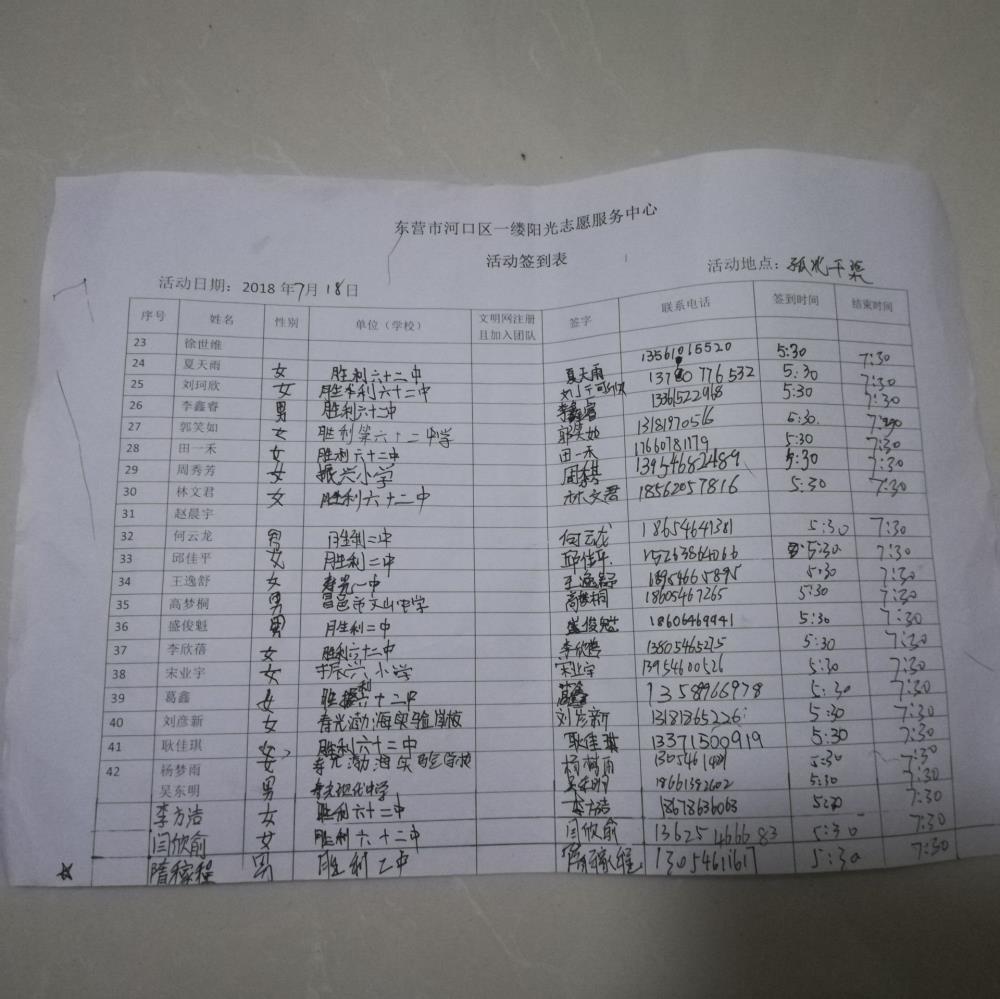 东营市河口区一缕阳光志愿服务中心
活动签到表
活动日期：2018年7月18日 活动地点：
序号 姓名 性别 单位（学校） 文明网注册且加入团队 签字 联系电话 签到时间 结束时间
23 徐世维
24 夏天雨 女 胜利六十二中 夏天雨 13561015520 5:30 7:30
25 刘珂欣 女 胜利六十二中 5:30 7:30
26 李鑫睿 男 胜利六十二中 李鑫睿 5:30 7:30
27 郭笑如 女 胜利第六十二中学 郭笑如 13181970516 5:30 7:30
28 田一禾 女 胜利六十二中 田一禾 17660781179 5:30 7:30
29 周秀芳 女 振兴小学 13954682489 5:30 7:30
30 林文君 女 胜利六十二中 林文君 18562057816 5:30 7:30
31 赵晨宇
32 何云龙 男 胜利二中 何云龙 18654641381 5:30 7:30
33 邱佳平 女 胜利二中 邱佳平 15263864066 5:30 7:30
34 王逸舒 女 寿光一中 王逸舒 18954665895 5:30 7:30
35 高梦桐 男 昌邑市文山中学 高梦桐 18605467265 5:30 7:30
36 盛俊魁 男 胜利二中 盛俊魁 18606469941 5:30 7:30
37 李欣蓓 女 胜利六十二中 李欣蓓 13805465275 5:30 7:30
38 宋业宇 女 振兴小学 宋业宇 13954600526 5:30 7:30
39 葛鑫 女 胜利六十二中 1358966978 5:30 7:30
40 刘彦新 女 寿光渤海实验学校 刘彦新 13181365226 5:30 7:30
41 耿佳琪 女 胜利六十二中 耿佳琪 13371500919 5:30 7:30
42 杨梦雨 女 寿光渤海实验学校 杨梦雨 5:30 7:30
吴东明 男 寿光现代中学 吴东明 18661392602 5:30 7:30
李方浩 女 胜利六十二中 李方浩 18678636068 5:30 7:30
闫欣俞 女 胜利六十二中 闫欣俞 13625466683 5:30 7:30
隋稼程 男 胜利乙中 13054611617 5:30 7:30